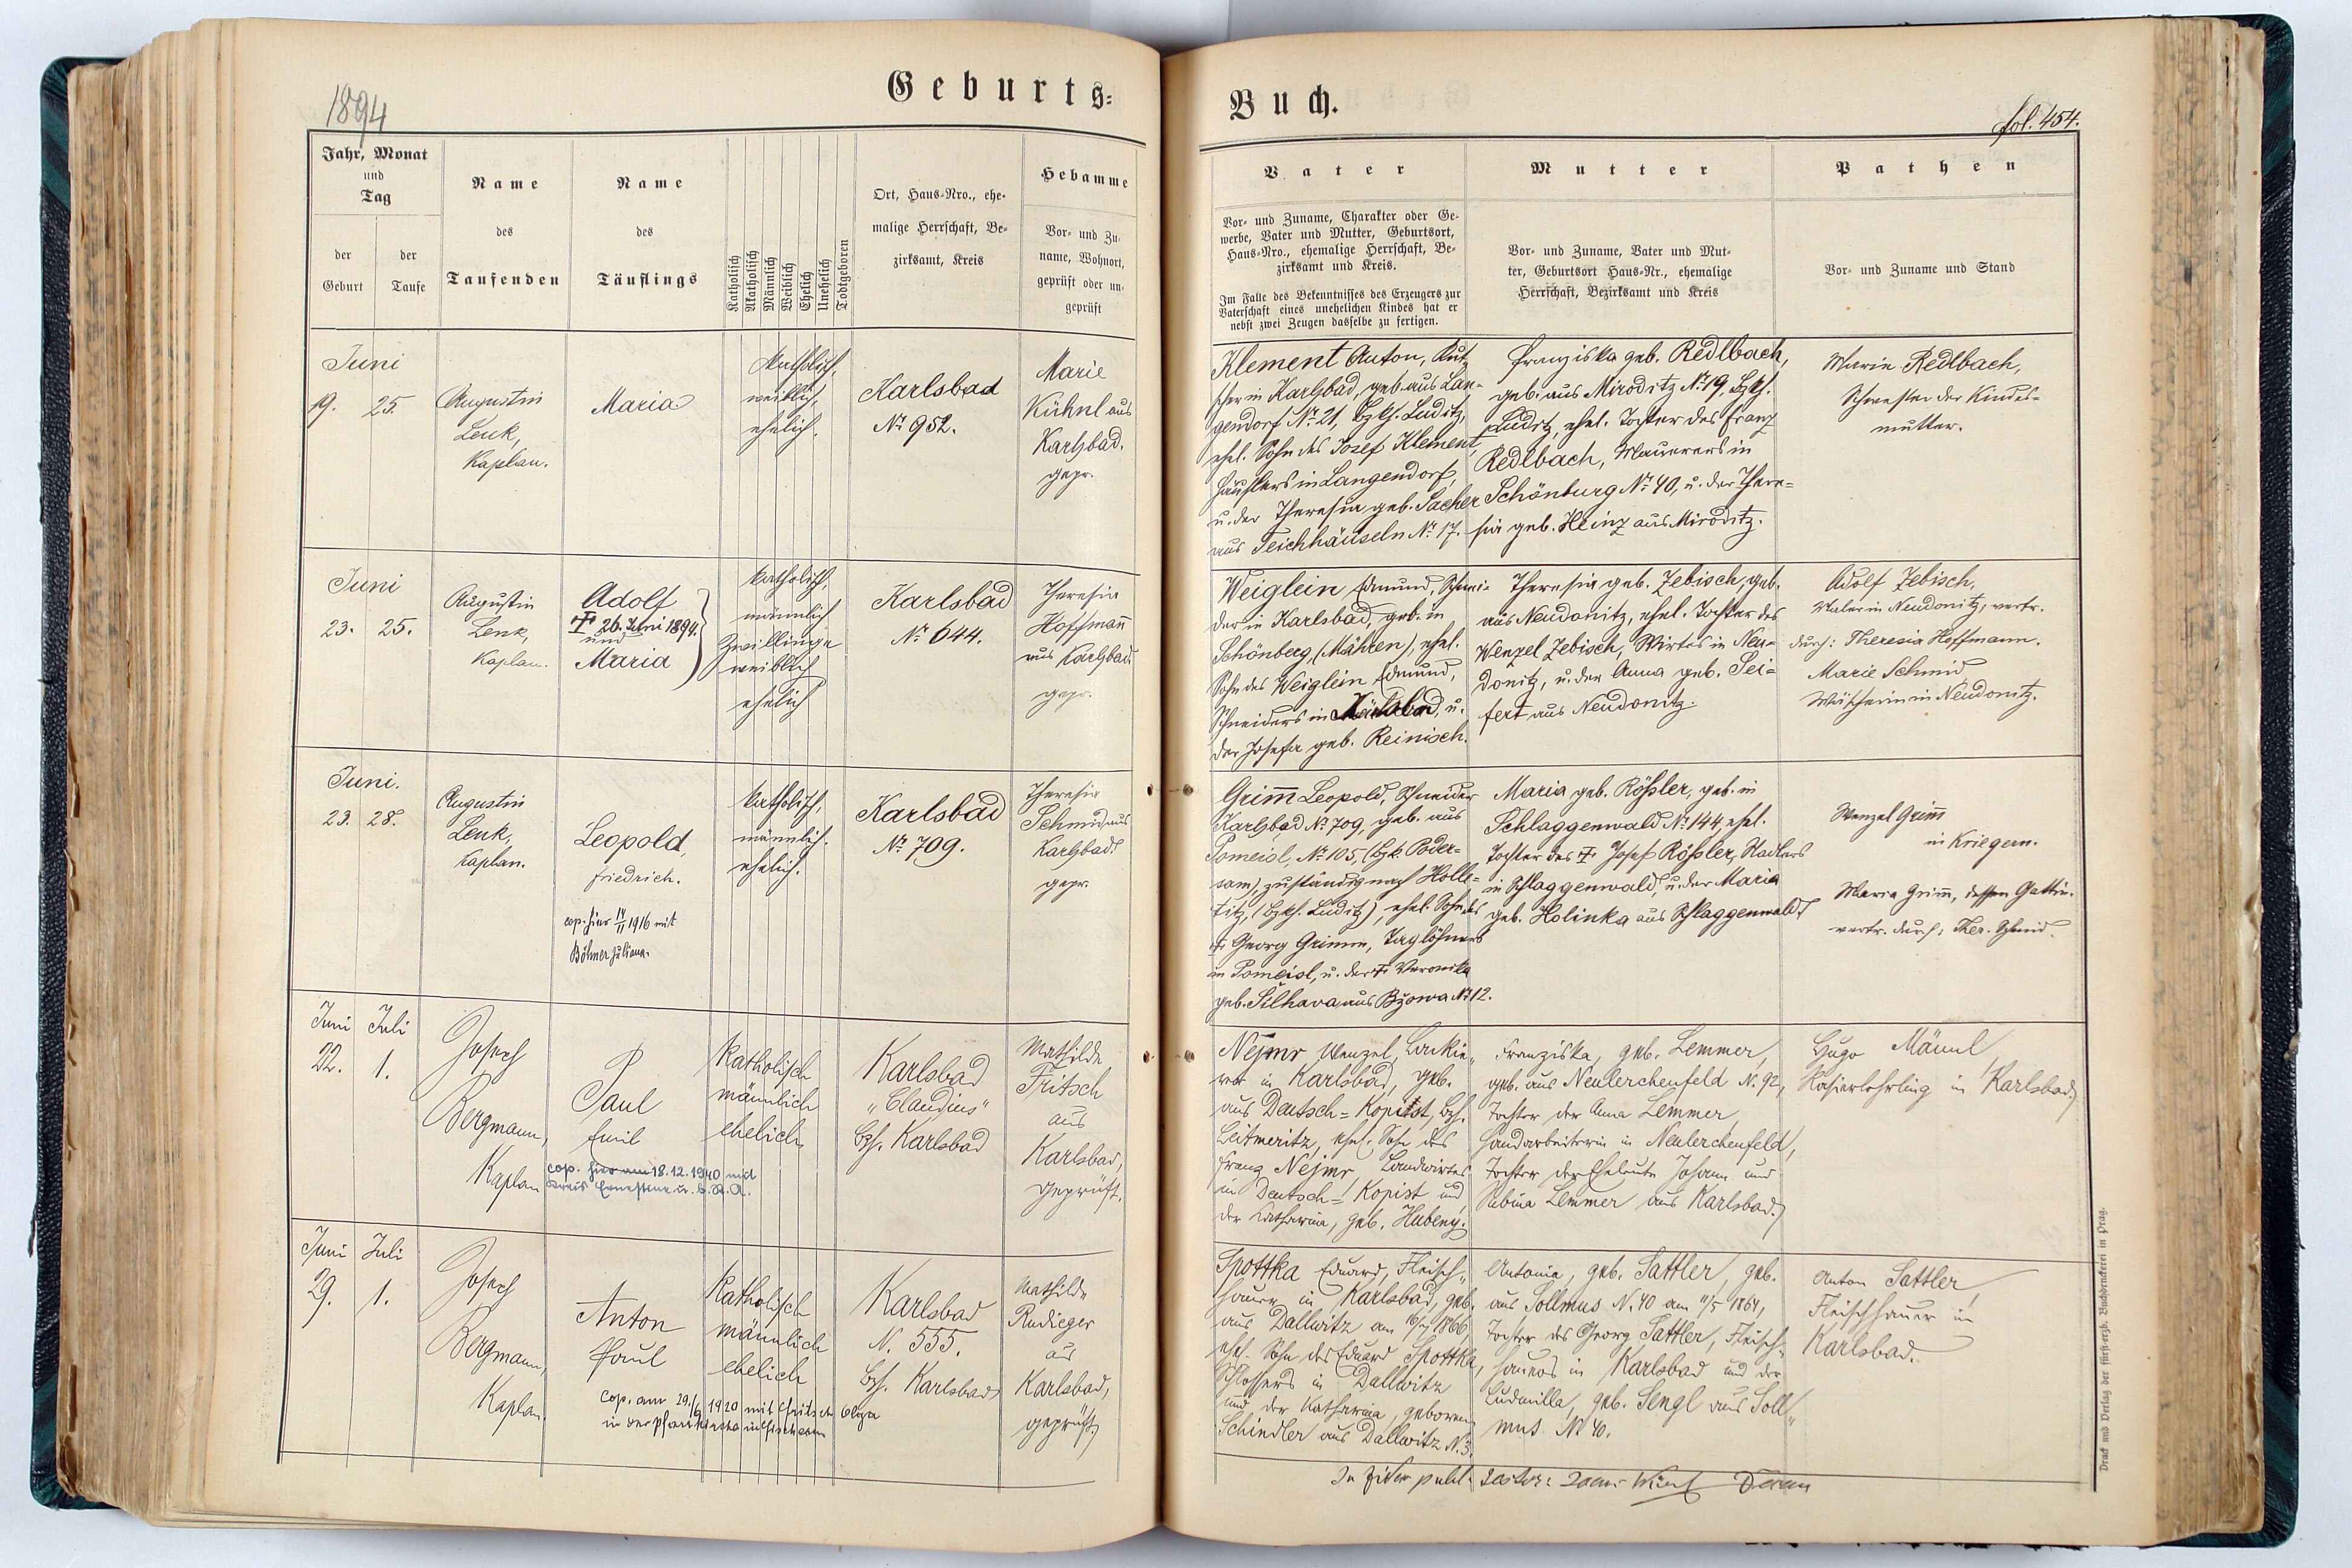 1894
Geburts-
Buch.
fol. 454.
Jahr, Monat
und
Tag
der
Geburt
der
Taufe
Name
des
Taufenden
Name
des
Täuflings
Katholisch
Akatholisch
Männlich
Weiblich
Ehelich
Unehelich
Todtgeboren
Ort, Haus-Nro., ehe-
malige Herrschaft, Be-
zirksamt, Kreis
Hebamme
Vor- und Zu-
name, Wohnort,
geprüft oder un-
geprüft
Vater
Vor- und Zuname, Charakter oder Ge-
werbe, Vater und Mutter, Geburtsort,
Haus-Nro., ehemalige Herrschaft, Be-
zirksamt und Kreis.
Im Falle des Bekenntnisses des Erzeugers zur
Vaterschaft eines unehelichen Kindes hat er
nebst zwei Zeugen dasselbe zu fertigen.
Mutter
Vor- und Zuname, Vater und Mut-
ter, Geburtsort Haus-Nr., ehemalige
Herrschaft, Bezirksamt und Kreis
Pathen
Vor- und Zuname und Stand
Juni
19. 25.
Augustin
Lenk,
Kaplan.
Maria
katholisch,
weiblich,
ehelich.
Karlsbad
No 952.
Marie
Kühnl aus
Karlsbad.
gepr.
Klement Anton, Kut-
scher in Karlsbad, geb. aus Lan-
gendorf No 21, Bzkh. Luditz,
ehel. Sohn des Josef Klement,
Häuslers in Langendorf,
u. der Theresia geb. Sacher
aus Teichhäuseln No 17.
Franziska geb. Redlbach,
geb. aus Miroditz No 19, Bzkh.
Luditz, ehel. Tochter des Franz
Redlbach, Maurers in
Schönburg No 40, u. der There-
sia geb. Heinz aus Miroditz.
Maria Redlbach,
Schwester der Kindes-
mutter.
Juni
23. 25.
Augustin
Lenk,
Kaplan.
Adolf
† 26. Juni 1894.
und
Maria
katholisch,
männlich
Zwillinge
weiblich
ehelich
Karlsbad
No 644.
Theresia
Hoffmann
aus Karlsbad.
gepr.
Weiglein Edmund, Schnei-
der in Karlsbad, geb. in
Schönberg, (Mähren), ehel.
Sohn des Weiglein Edmund,
Schneiders in Karlsbad, u.
der Josefa geb. Reinisch.
Theresia geb. Zebisch, geb.
aus Neudonitz, ehel. Tochter des
Wenzel Zebisch, Wirtes in Neu-
donitz, u. der Anna geb. Sei-
fert aus Neudonitz.
Adolf Zebisch,
Maler in Neudonitz, vertr.
durch: Theresia Hoffmann.
Marie Schmid
Wäscherin in Neudonitz.
Juni.
23. 28.
Augustin
Lenk,
Kaplan.
Leopold,
Friedrich.
cop. hier 14/11 1916 mit
Böhmer Juliana.
katholisch,
männlich.
ehelich.
Karlsbad
No 709.
Theresia
Schmid, aus
Karlsbad.
gepr.
Grimm Leopold, Schneider
Karlsbad No 709, geb. aus
Pomeisl, No 105, (Bzk. Poder-
sam), zuständig nach Holle-
titz, (Bzkh. Luditz), ehel. Sohn des
† Georg Grimm, Taglöhners
in Pomeisl, u. der † Veronika
geb. Silhava aus Bzowa No 12.
Maria geb. Rößler, geb. in
Schlaggenwald No 144, ehel.
Tochter des † Josef Rößler, Nadlers
in Schlaggenwald, u. der Maria
geb. Holinka aus Schlaggenwald
Wenzel Grimm
in Kriegern.
Maria Grimm, dessen Gattin.
vertr. durch: Ther. Schmid.
Juni Juli
22. 1.
Josef
Bergmann,
Kaplan
Paul
Emil
cop. hier am 18.12.1940 mit
Ernestine
Katholisch
männlich
ehelich
Karlsbad
"Claudius"
Bzh. Karlsbad
Mathilde
Fritsch
aus
Karlsbad,
geprüft.
Nejmr Wenzel, Lackie-
rer in Karlsbad, geb.
aus Deutsch-Kopist, Bzh.
Leitmeritz, ehel. Sohn des
Franz Nejmr Landwirtes
in Deutsch-Kopist und
der Katharina, geb. Hubeny.
Franziska, geb. Lemmer,
geb. aus Neulerchenfeld N. 92,
Tochter der Anna Lemmer,
Handarbeiterin in Neulerchenfeld,
Tochter der Eheleute Johann und
Sabina Lemmer aus Karlsbad.
Hugo Männl,
in Karlsbad
Juni Juli
29. 1.
Josef
Bergmann,
Kaplan.
Anton
Paul
cop. am 29./6 1920 mit Olga
in der Pfarrkirche in Fischern
Katholisch
männlich
ehelich
Karlsbad
N. 555.
Bzh. Karlsbad
Mathilde
Rudieger
aus
Karlsbad,
geprüft
Spottka Eduard, Fleisch-
hauer in Karlsbad, geb.
aus Dallwitz am 1866
ehel. Sohn des Eduard Spottka,
Schlossers in Dallwitz
und der Katharina, geborene
Schindler aus Dallwitz N. 3.
Antonia, geb. Sattler, geb.
aus Sollmus N. 40 am 11/5 1864,
Tochter des Georg Sattler, Fleisch-
hauers in Karlsbad und der
Ludmilla, geb. Sengl aus Soll-
mus N. 40.
Anton Sattler,
Fleischhauer in
Karlsbad.
Druck und Verlag der fürst-erzb. Buchdruckerei in Prag.